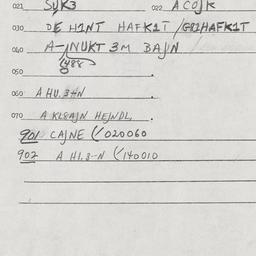 021 SYK3 022 ACOJK
030 DE H1NT HAFK1T /GR1HAFK1T
040 A-JNUKT 3M BAJN
050 .
060 A HU.3+N
070 A KL8AJN HEJNDL .
901 CAJNE (/020060
902 A HI.3-N (/140010